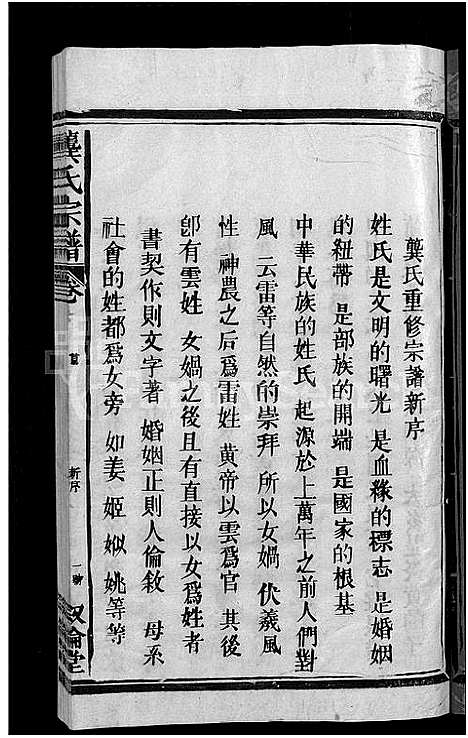 龔氏重修宗譜新序
姓氏是文明的曙光 是血緣的標志 是婚姻
的紐帶 是部族的開端 是國家的根基
中華民族的姓氏 起源於上萬年之前人們對
風 云雷等自然的崇拜 所以女媧 伏羲風
性 神農之后爲雷姓 黄帝以雲爲官 其後
卽有雲姓 女媧之後且有直接以女爲姓者
書契作則文字著 婚姻正則人倫敘 母系
社會的姓都爲女旁 如姜 姬 姒 姚等等
龔氏宗譜 卷首 新序 一 敘倫堂